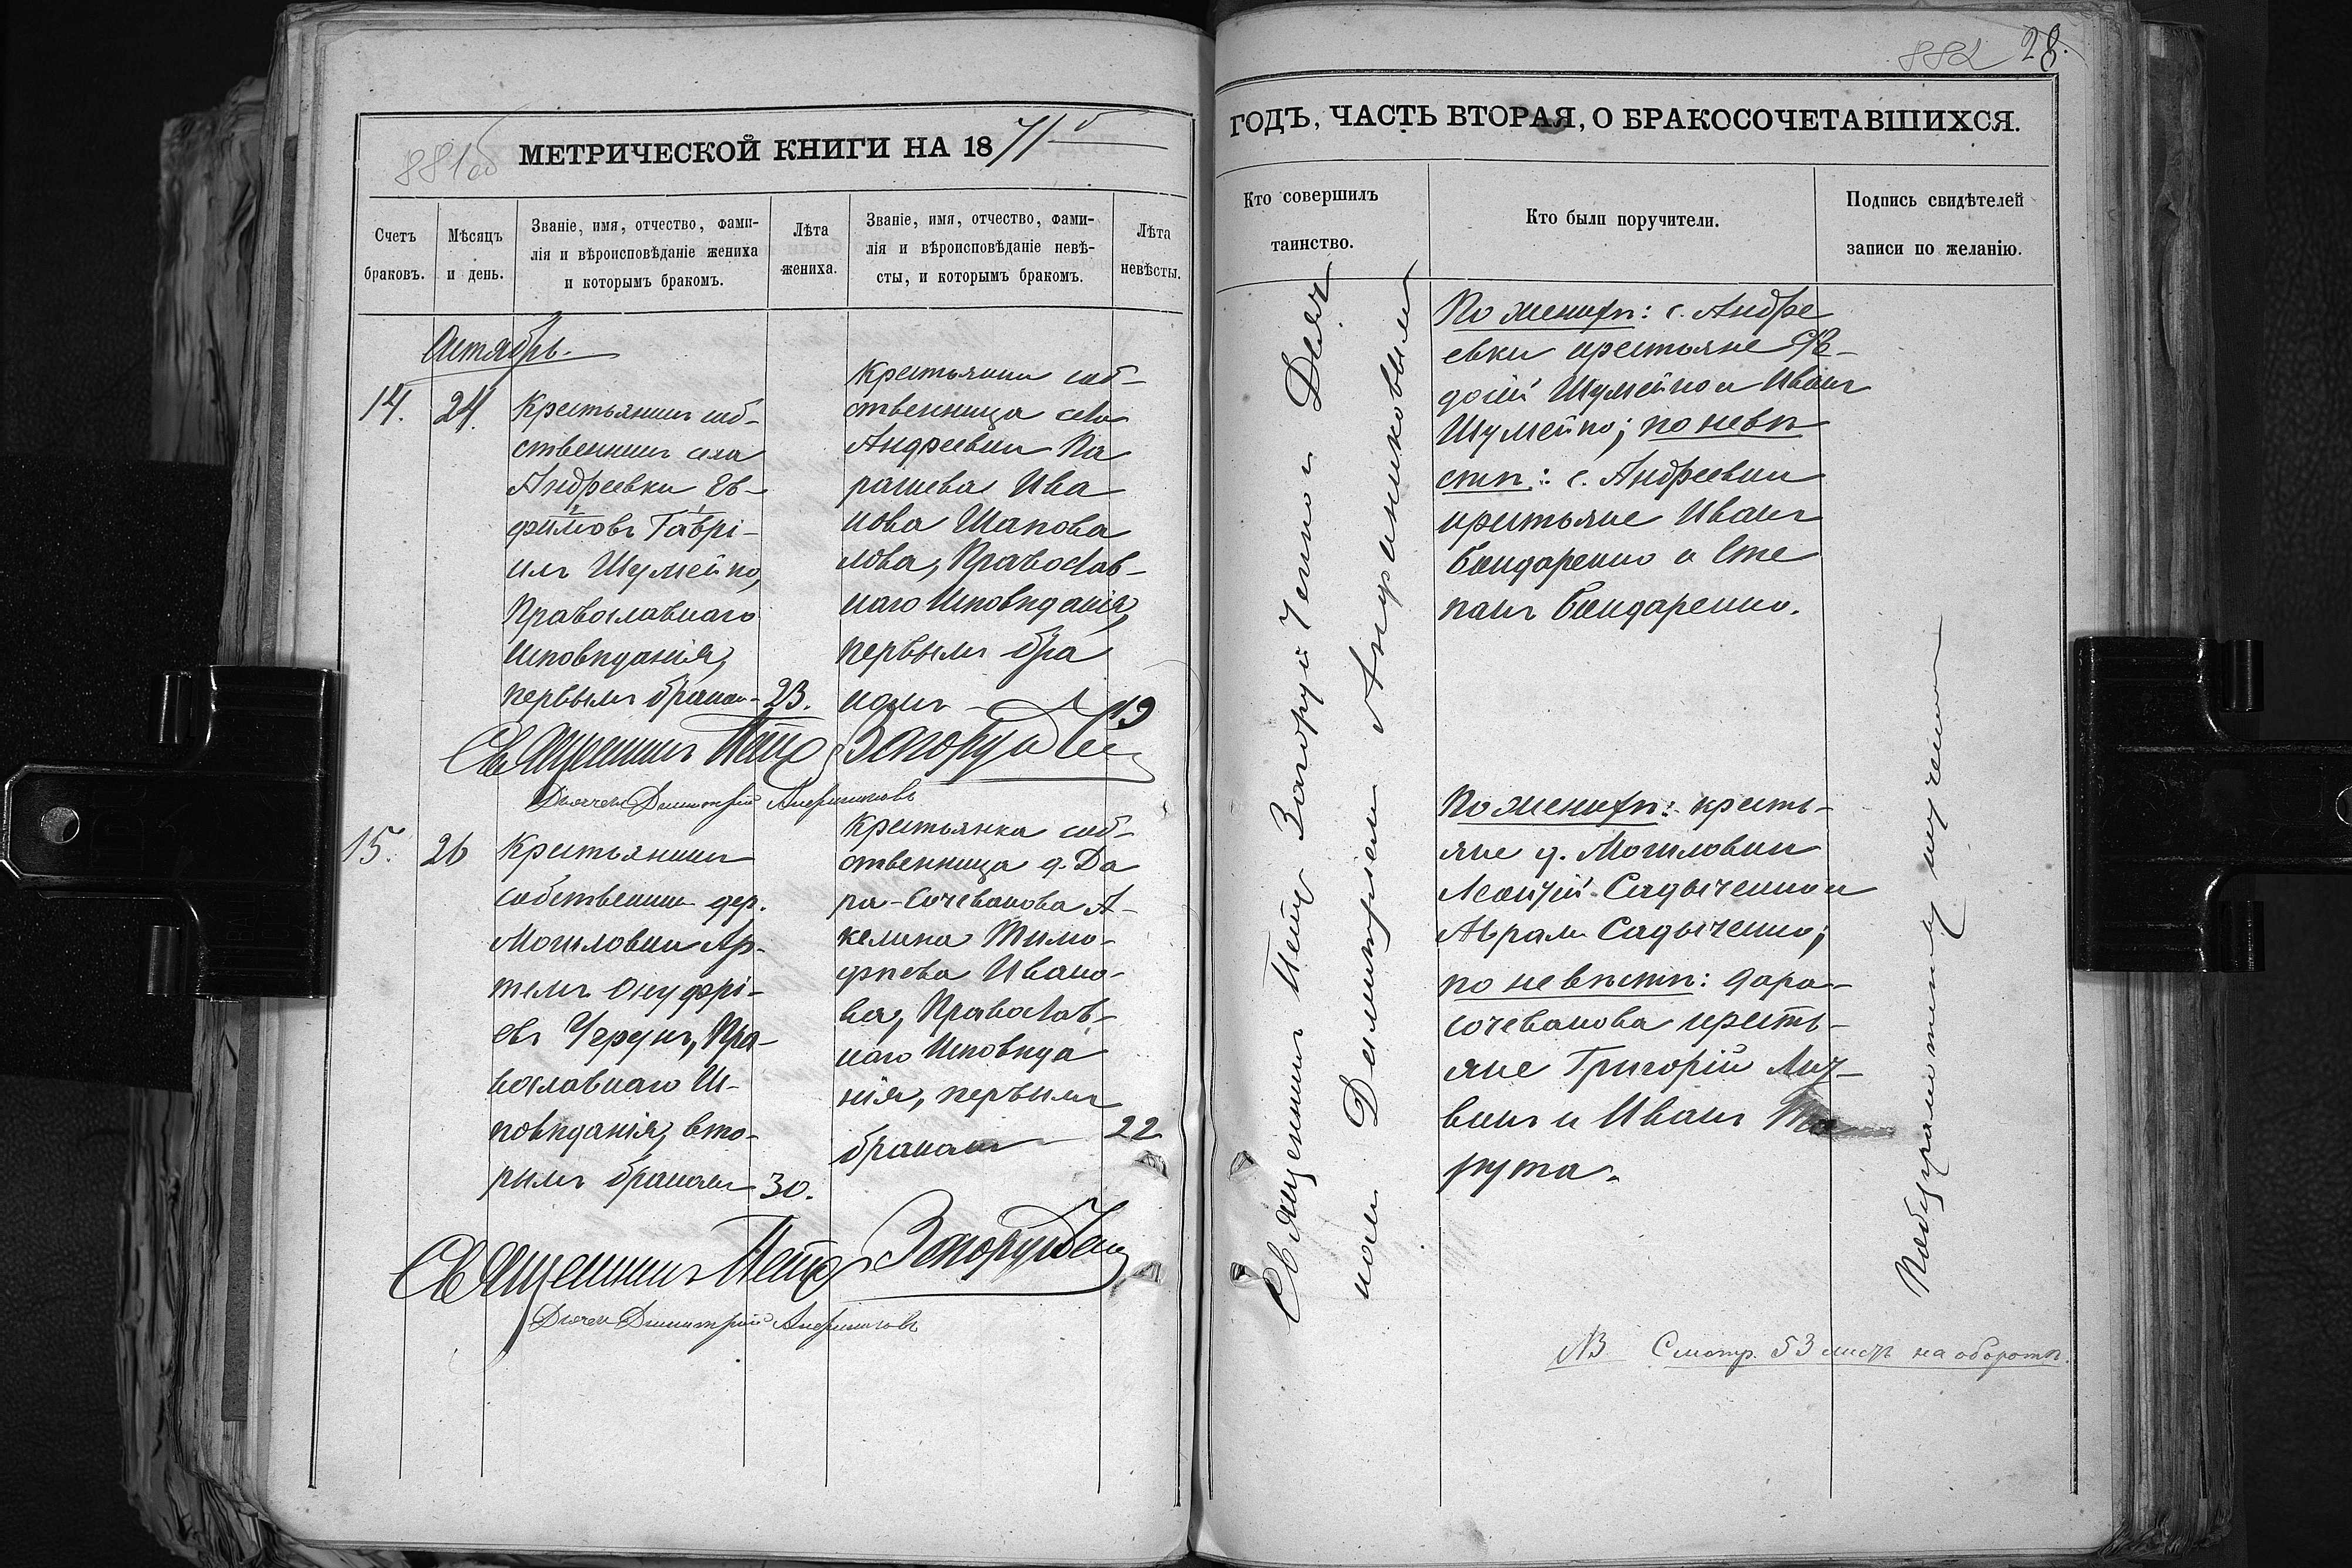 881об
МЕТРИЧЕСКОЙ КНИГИ НА 1871
Счетъ браковъ.
Мѣсяцъ и день.
Званіе, имя, отчество, фами-
лія и вѣроисповѣданіе жениха
и которымъ бракомъ.
Лѣта жениха.
Званіе, имя, отчество, фами-
лія и вѣроисповѣданіе невѣ-
сты, и которымъ бракомъ.
Лѣта невѣсты.
Октябрь.
14.
24.
Крестьянинъ соб-
ственникъ села
Андреевки Ев-
фимовъ Гаврі-
илъ Шумейко,
Православнаго
исповѣданія,
первымъ бракомъ
23.
Крестьянка соб-
ственница села
Андреевки Па
рашева Ива
нова Шапова
лова, Православ-
наго Исповѣданія,
первымъ бра
комъ
19
Священникъ Петръ Загоруйченко
Дьячекъ Димитрій Андрияковъ
15.
26
Крестьянинъ
собственникъ дер.
Могиловки Ар-
темъ Онуфрі-
евъ Черунъ, Пра-
вославнаго Ис-
повѣданія, вто-
рымъ бракомъ
30.
Крестьянка соб-
ственница д. До
ра-Сочеванова А-
келина Тимо-
фѣева Ивано-
ва, Православ-
наго Исповѣда
нія, первымъ
бракомъ
22
Священникъ Петръ Загоруйченко
Дьячекъ Димитрій
882 28.
ГОДЪ, ЧАСТЬ ВТОРАЯ, О БРАКОСОЧЕТАВШИХСЯ.
Кто совершилъ
таинство.
Кто были поручители.
Подпись свидѣтелей
записи по желанію.
Священникъ Петръ Загоруйченко и Дьяч
комъ Димитріемъ
По женихѣ: с. Андре
евки крестьяне Фе-
досій Шумейко и Иванъ
Шумейко; по невѣ
стѣ: с. Андреевки
крестьяне Иванъ
Бандаренко и Сте
панъ Бандаренко.
По женихѣ: кресть-
яне д. Могиловки
Садыченко и
Аврамъ Садыченко;
по невѣстѣ: дора-
сочеванова кресть-
яне Григорій Лит-
винъ и Иванъ Та
рута.
NB Смотр. 53 листъ на оборотѣ.